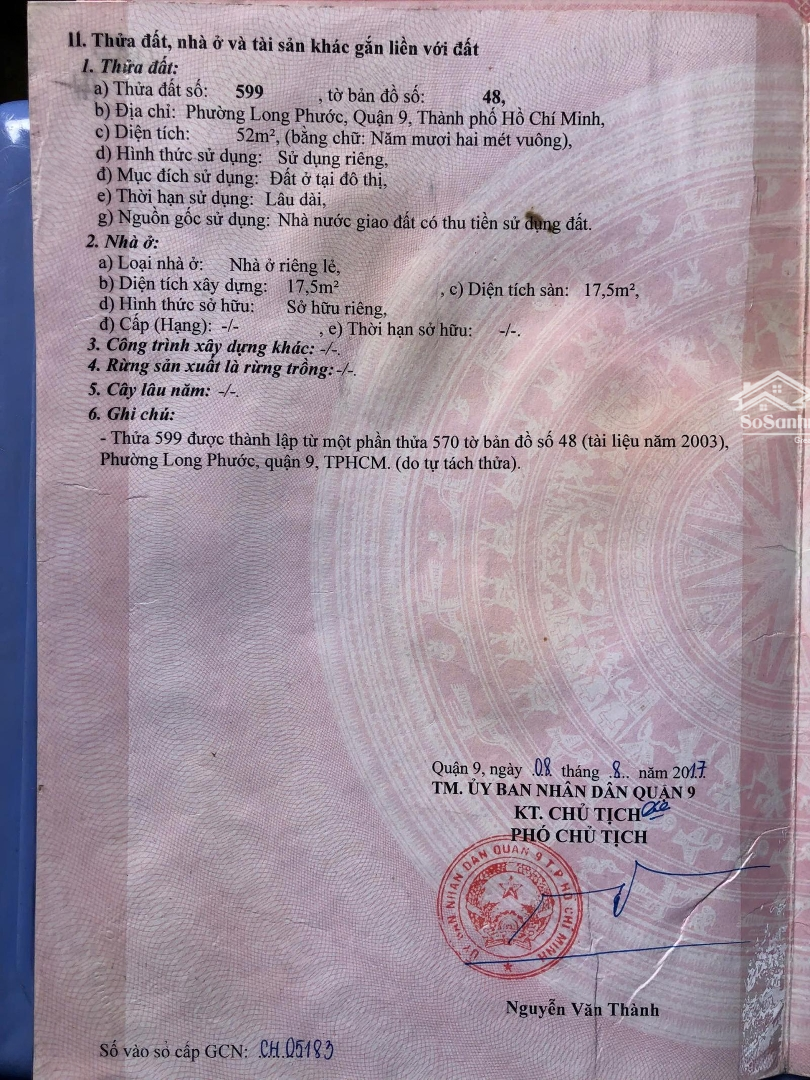 II. Thửa đất, nhà ở và tài sản khác gắn liền với đất
1. Thửa đất:
a) Thửa đất số: 599 , tờ bản đồ số: 48,
b) Địa chỉ: Phường Long Phước, Quận 9, Thành phố Hồ Chí Minh,
c) Diện tích: 52m², (bằng chữ: Năm mươi hai mét vuông),
d) Hình thức sử dụng: Sử dụng riêng,
đ) Mục đích sử dụng: Đất ở tại đô thị,
e) Thời hạn sử dụng: Lâu dài,
g) Nguồn gốc sử dụng: Nhà nước giao đất có thu tiền sử dụng đất.
2. Nhà ở:
a) Loại nhà ở: Nhà ở riêng lẻ,
b) Diện tích xây dựng: 17,5m² , c) Diện tích sàn: 17,5m²,
d) Hình thức sở hữu: Sở hữu riêng,
đ) Cấp (Hạng): -/- , e) Thời hạn sở hữu: -/-.
3. Công trình xây dựng khác: -/-.
4. Rừng sản xuất là rừng trồng: -/-.
5. Cây lâu năm: -/-.
6. Ghi chú:
- Thửa 599 được thành lập từ một phần thửa 570 tờ bản đồ số 48 (tài liệu năm 2003),
Phường Long Phước, quận 9, TPHCM. (do tự tách thửa).
SoSanh
Quận 9, ngày 08 tháng 8.. năm 2017
TM. ỦY BAN NHÂN DÂN QUẬN 9
KT. CHỦ TỊCH
PHÓ CHỦ TỊCH
ỦY BAN NHÂN DÂN QUẬN 9 T.P HỒ CHÍ MINH
Nguyễn Văn Thành
Số vào sổ cấp GCN: CH.05183